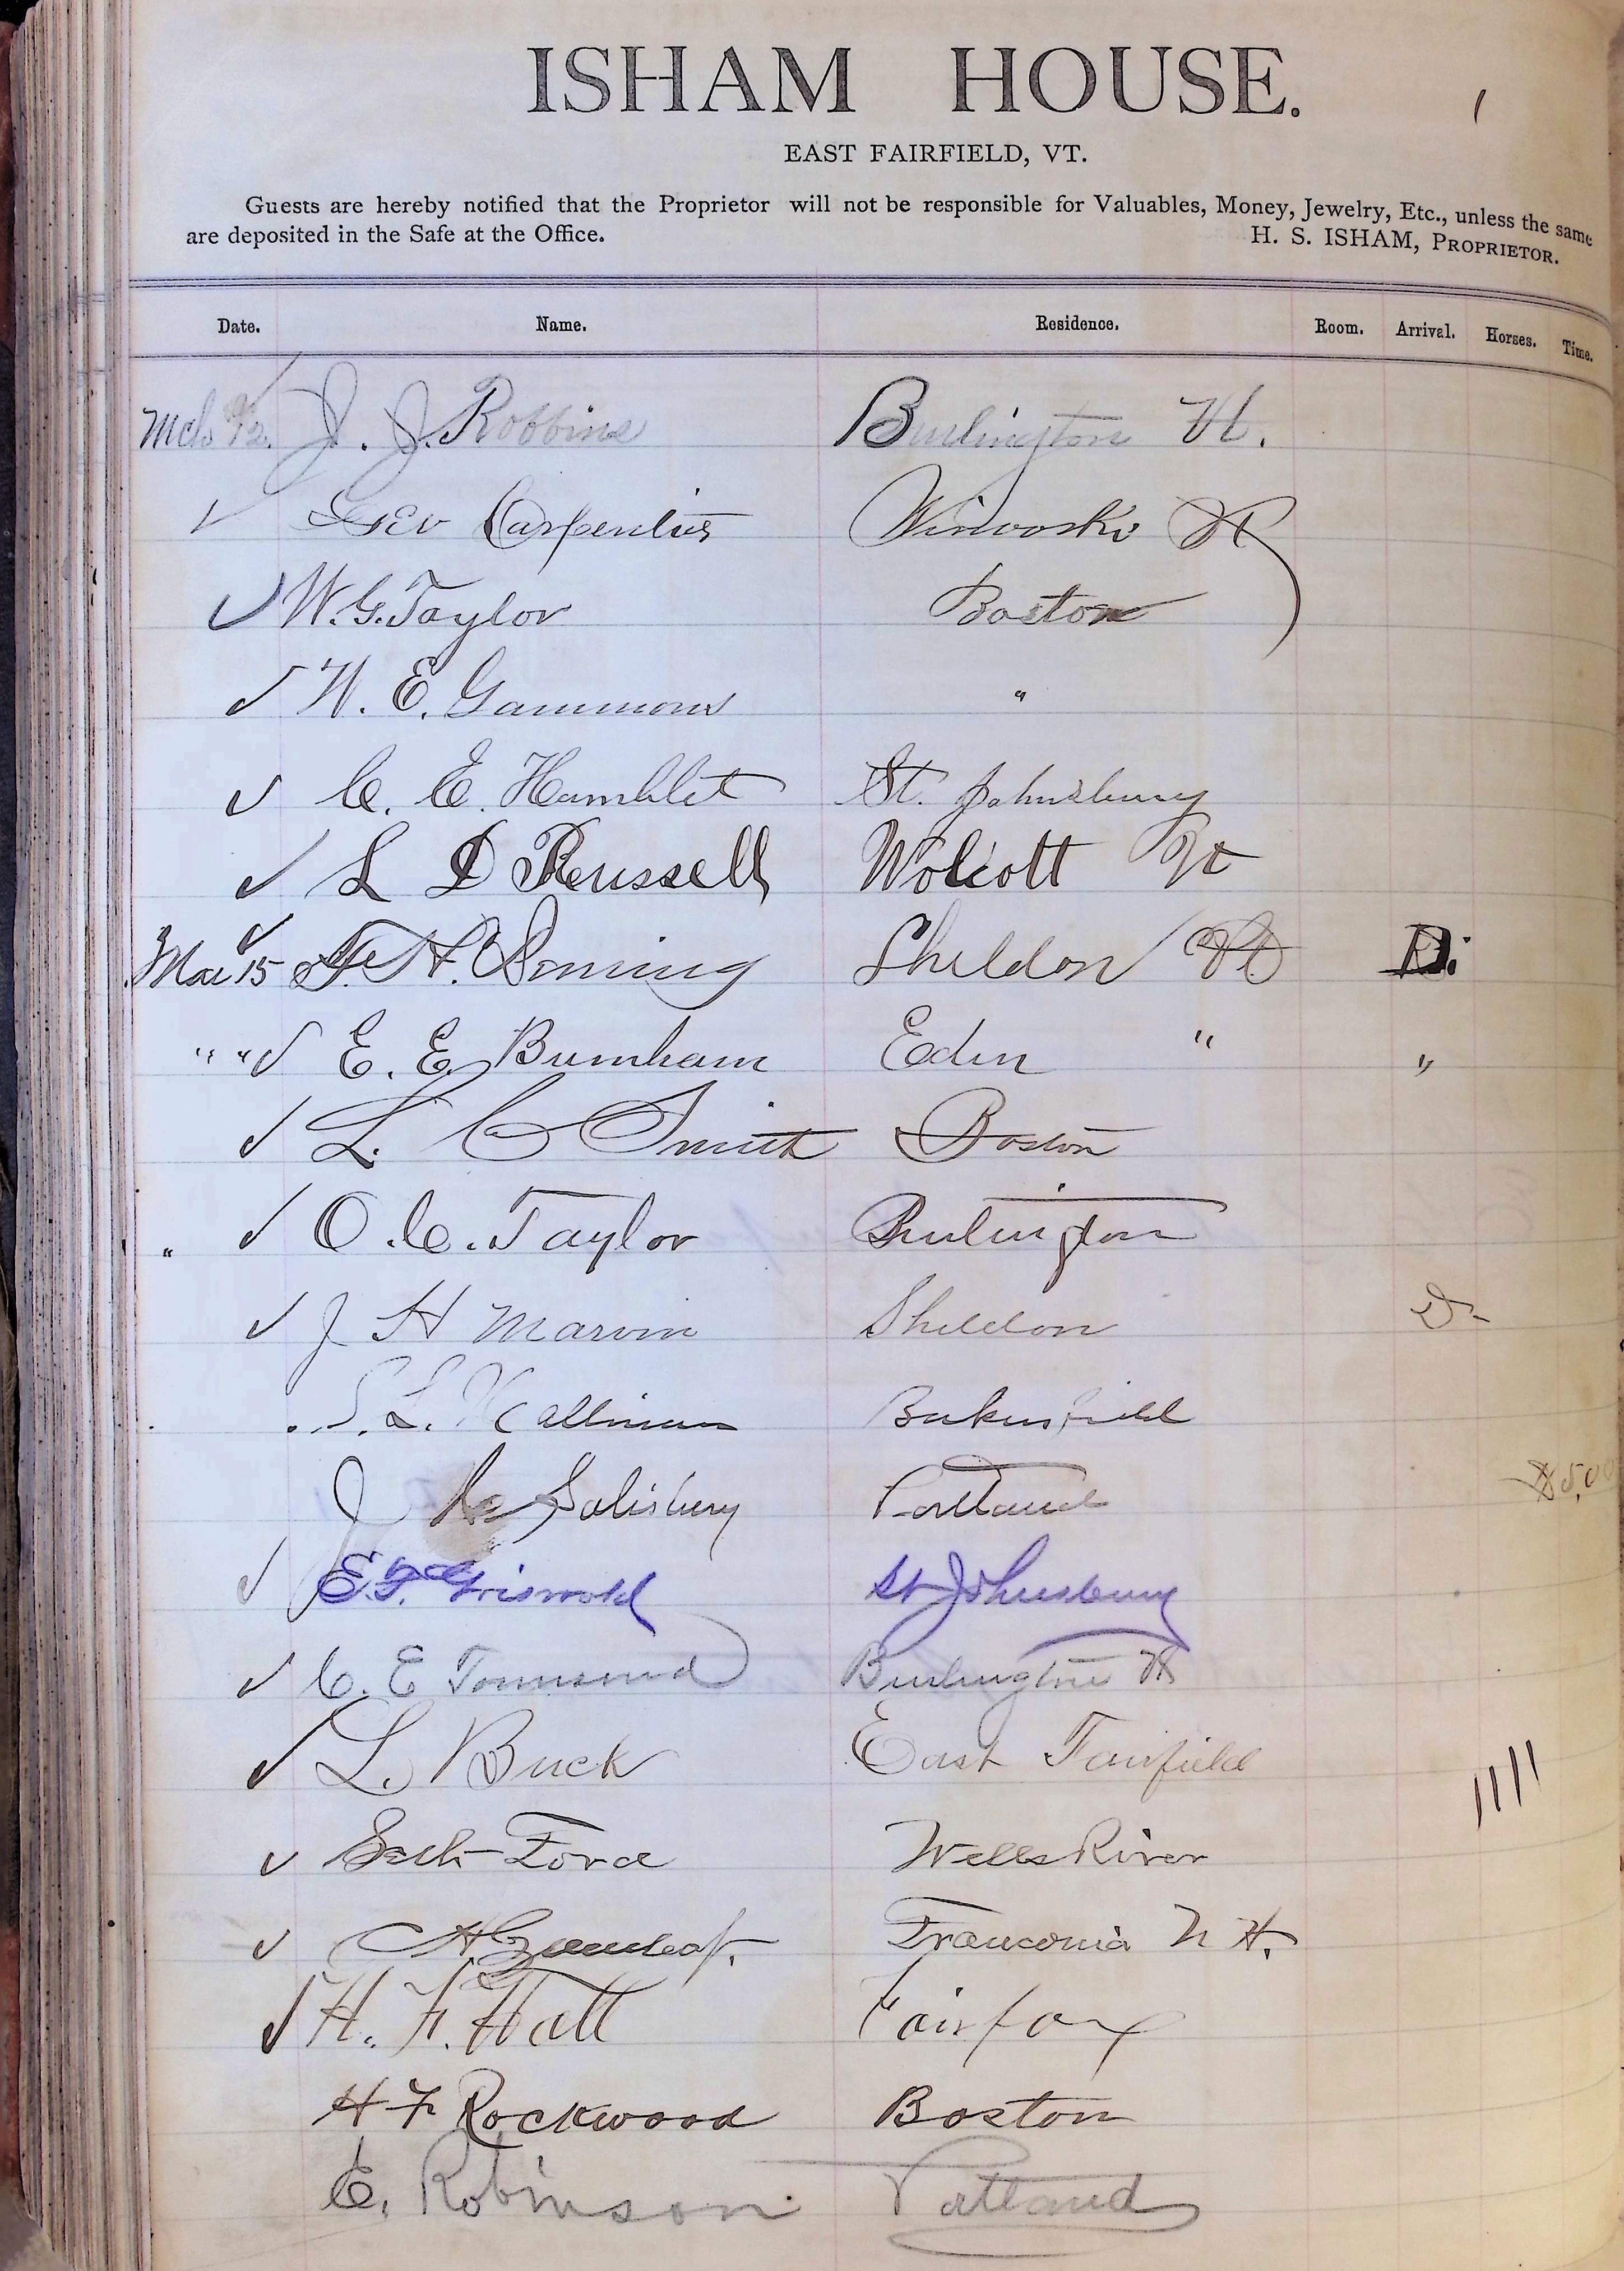 ISHAM HOUSE.
EAST FAIRFIELD, VT.
Guests are hereby notified that the Proprietor will not be responsible for Valuables, Money, Jewelry, Etc., unless the same
are deposited in the Safe at the Office. H. S. ISHAM, PROPRIETOR.
Date. Name. Residence. Room. Arrival. Horses. Time.
Mch 12. J. J. Robbins Burlington Vt.
✓ Geo Carpentier Winooski Vt
✓ W. G. Taylor Boston
✓ W. E. Gammons "
✓ C. E. Hamblet St. Johnsbury
✓ L D Russell Wolcott Vt
Mar 15 ✓ H. Sheldon Vt D.
" " ✓ E. E. Burnham Eden " "
✓ L. C Smith Boston
" ✓ O. C. Taylor Burlington
✓ J H Marvin Sheldon D-
S. L. Bakersfield
J Salisbury Portland $5,00
✓ E. F. Griswold St Johnsbury
✓ C. E Townsend Burlington Vt
✓ L. Buck East Fairfield
✓ Seth Ford Wells River
✓ Greenleaf. Franconia N H.
✓ H. F. Hall Fairfax
H F Rockwood Boston
C. Robinson. Portland